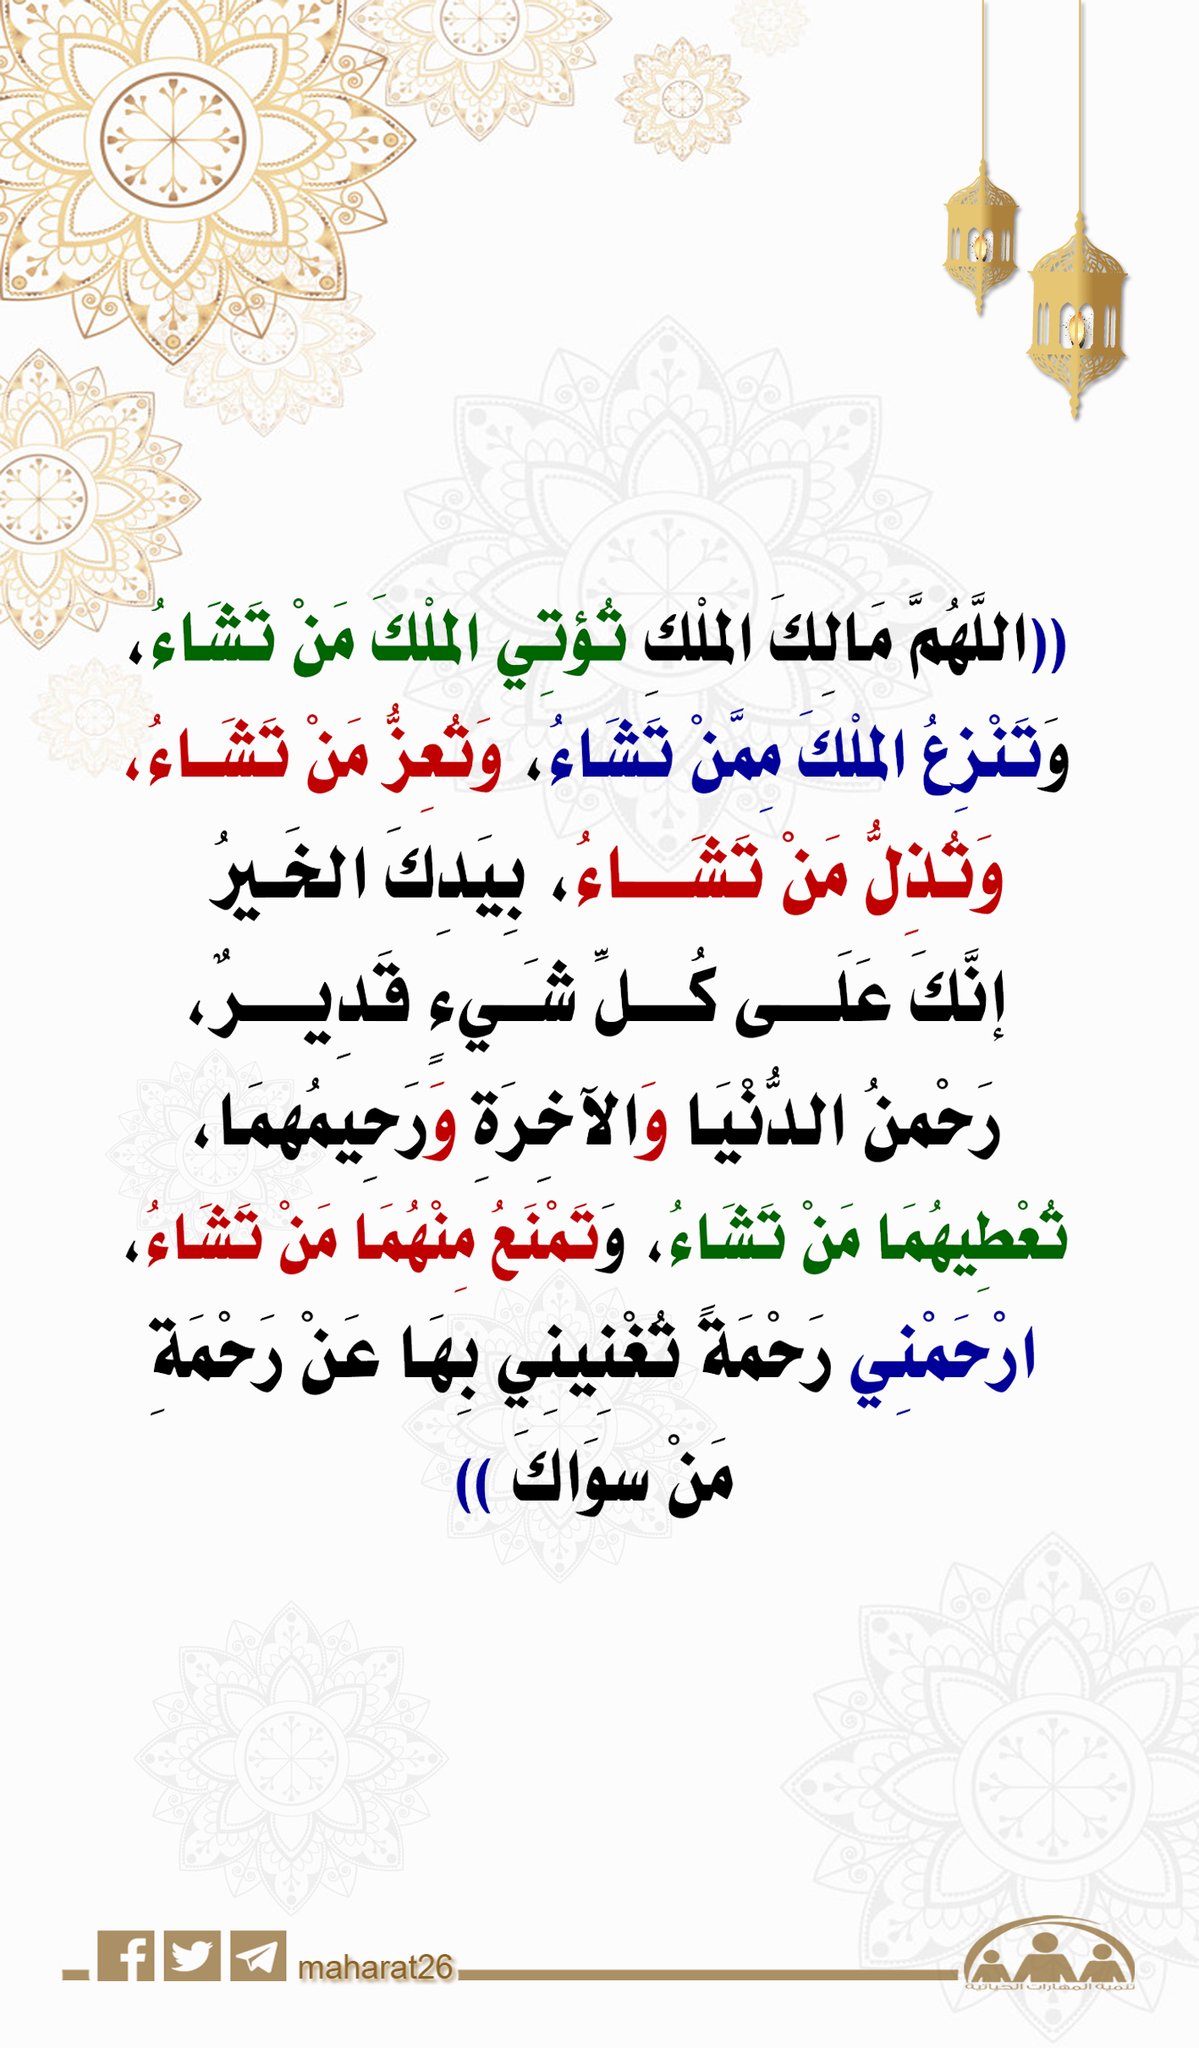 ((اللَّهُمَّ مَالِكَ الملْكِ تُؤتِي الملْكَ مَنْ تَشَاءُ،
وَتَنْزِعُ الملْكَ مِمَّنْ تَشَاءُ، وَتُعِزُّ مَنْ تَشَاءُ،
وَتُذِلُّ مَنْ تَشَاءُ، بِيَدِكَ الخَيرُ
إنَّكَ عَلَى كُلِّ شَيءٍ قَدِيرٌ،
رَحْمنُ الدُّنْيَا وَالآخِرَةِ وَرَحِيمُهمَا،
تُعْطِيهُمَا مَنْ تَشَاءُ، وَتَمْنَعُ مِنْهُمَا مَنْ تَشَاءُ،
ارْحَمْنِي رَحْمَةً تُغْنِينِي بِهَا عَنْ رَحْمَةِ
مَنْ سوَاكَ ))
maharat26
تنمية المهارات الحياتية